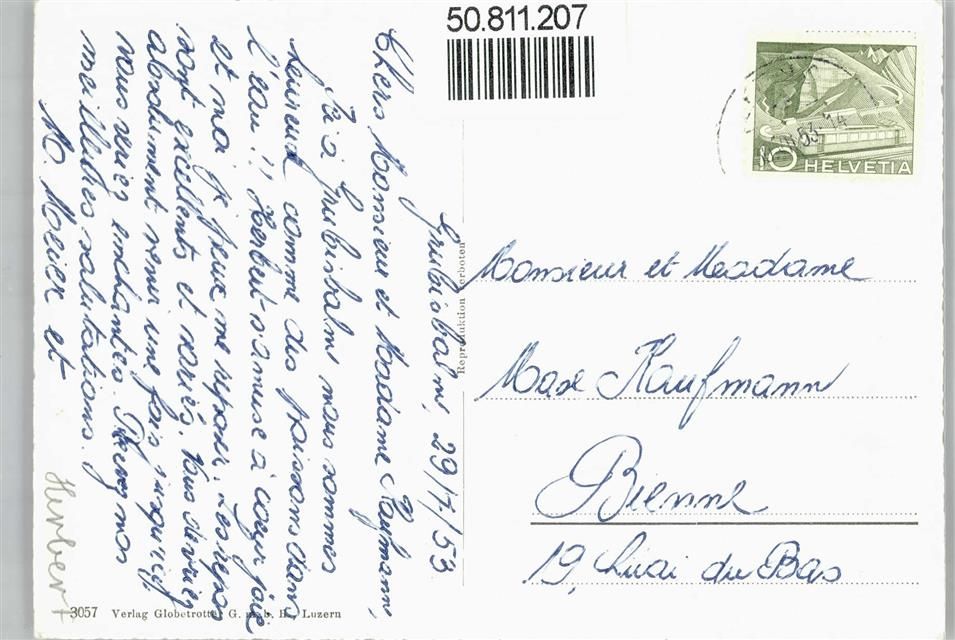 50.811.207
Grubisbalm, 29/7/53
Chers Monsieur et Madame Kaufmann,
Ici à Grubisbalm nous sommes
heureux comme des poissons dans
l'eau!! Herbert s'amuse à cœur joie
et moi je peux me reposer. Les repas
sont excellents et variés. Vous devriez
absolument venir une fois jusqu'ici
vous seriez enchantés. Recevez nos
meilleures salutations.
M. Meier et
Herbert
Reproduktion verboten
53-14
10 HELVETIA
Monsieur et Madame
Max Kaufmann
Bienne
19, Quai du Bas
3057 Verlag Globetrotter G. m. b. H., Luzern